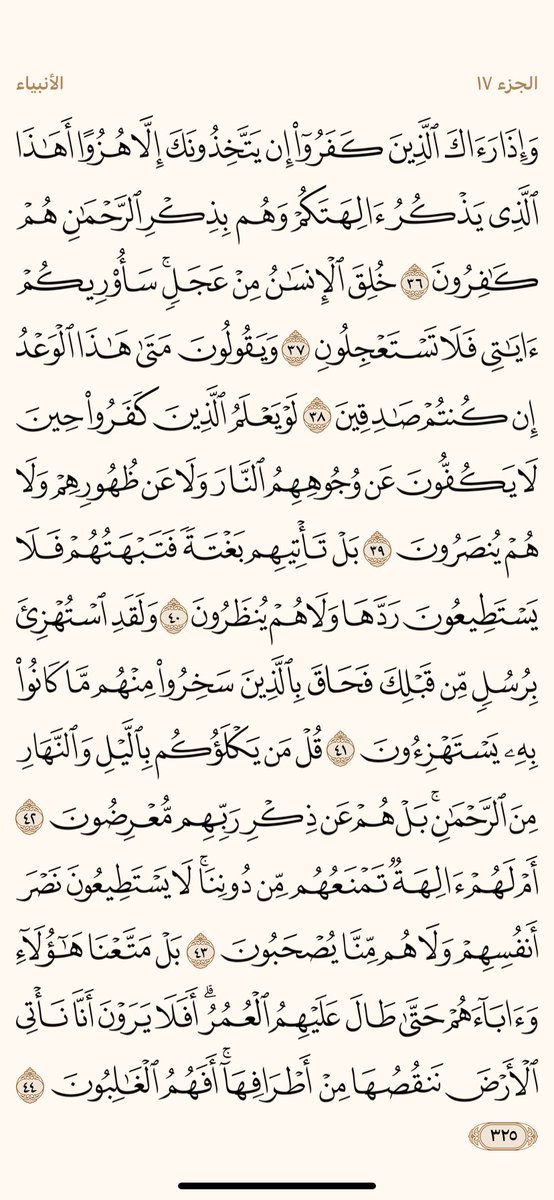 الجزء ١٧ الأنبياء
وَإِذَا رَءَاكَ ٱلَّذِينَ كَفَرُوٓا۟ إِن يَتَّخِذُونَكَ إِلَّا هُزُوًا أَهَـٰذَا
ٱلَّذِى يَذْكُرُ ءَالِهَتَكُمْ وَهُم بِذِكْرِ ٱلرَّحْمَـٰنِ هُمْ
كَـٰفِرُونَ ٣٦ خُلِقَ ٱلْإِنسَـٰنُ مِنْ عَجَلٍ ۚ سَأُو۟رِيكُمْ
ءَايَـٰتِى فَلَا تَسْتَعْجِلُونِ ٣٧ وَيَقُولُونَ مَتَىٰ هَـٰذَا ٱلْوَعْدُ
إِن كُنتُمْ صَـٰدِقِينَ ٣٨ لَوْ يَعْلَمُ ٱلَّذِينَ كَفَرُوا۟ حِينَ
لَا يَكُفُّونَ عَن وُجُوهِهِمُ ٱلنَّارَ وَلَا عَن ظُهُورِهِمْ وَلَا
هُمْ يُنصَرُونَ ٣٩ بَلْ تَأْتِيهِم بَغْتَةً فَتَبْهَتُهُمْ فَلَا
يَسْتَطِيعُونَ رَدَّهَا وَلَا هُمْ يُنظَرُونَ ٤٠ وَلَقَدِ ٱسْتُهْزِئَ
بِرُسُلٍ مِّن قَبْلِكَ فَحَاقَ بِٱلَّذِينَ سَخِرُوا۟ مِنْهُم مَّا كَانُوا۟
بِهِۦ يَسْتَهْزِءُونَ ٤١ قُلْ مَن يَكْلَؤُكُم بِٱلَّيْلِ وَٱلنَّهَارِ
مِنَ ٱلرَّحْمَـٰنِ ۗ بَلْ هُمْ عَن ذِكْرِ رَبِّهِم مُّعْرِضُونَ ٤٢
أَمْ لَهُمْ ءَالِهَةٌ تَمْنَعُهُم مِّن دُونِنَا ۚ لَا يَسْتَطِيعُونَ نَصْرَ
أَنفُسِهِمْ وَلَا هُم مِّنَّا يُصْحَبُونَ ٤٣ بَلْ مَتَّعْنَا هَـٰٓؤُلَآءِ
وَءَابَآءَهُمْ حَتَّىٰ طَالَ عَلَيْهِمُ ٱلْعُمُرُ ۗ أَفَلَا يَرَوْنَ أَنَّا نَأْتِى
ٱلْأَرْضَ نَنقُصُهَا مِنْ أَطْرَافِهَآ ۚ أَفَهُمُ ٱلْغَـٰلِبُونَ ٤٤
٣٢٥